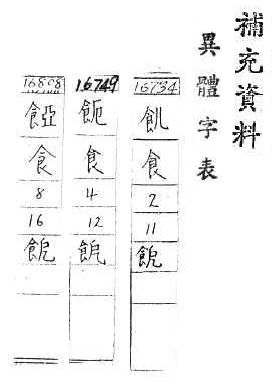 補充資料
異體字表
16734
飢
食
2
11
16749
食
4
12
16808
食
8
16